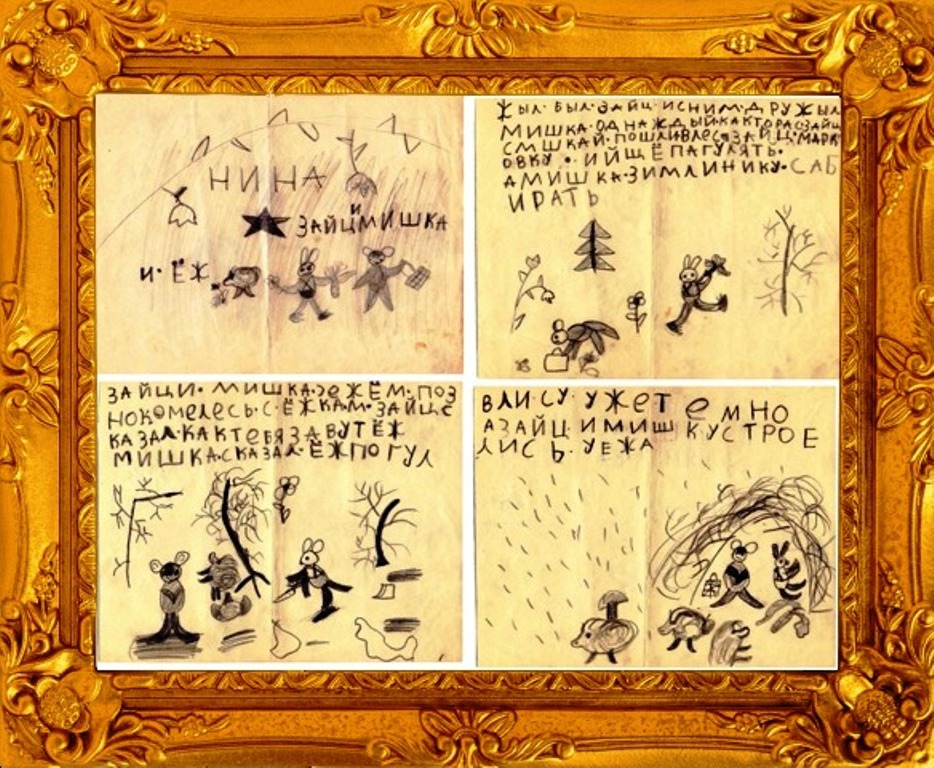 НИНА
И
ЗАЙЦ МИШКА
И · ЁЖ
ЖЫЛ · БЫЛ · ЗАЙЦ · И СНИМ · ДРУЖЫЛ
МИШКА · ОДНАЖДЫЙ · КАКТО РАС ЗАЙЦ
СМШКАЙ · ПОШЛИ ВЛЕС ЗАЙЦ · МАРК
ОВКУ · ИЙЩЁ ПАГУЛЯТЬ ·
АМИШКА · ЗИМЛИНИКУ · САБ
ИРАТЬ
ЗАЙЦИ · МИШКА · ЗЕЖЁМ · ПОЗ
НОКОМЕЛЕСЬ · С · ЁЖКАМ · ЗАЙЦ С
КАЗАЛ · КАК ТЕБЯ ЗАВУТ ЁЖ
МИШКА · СКАЗАЛ · ЁЖ ПОГУЛ
ВЛИСУ · УЖЕ ТЕМНО
АЗАЙЦ · ИМИШКУСТРОЕ
ЛИСЬ · УЕЖА